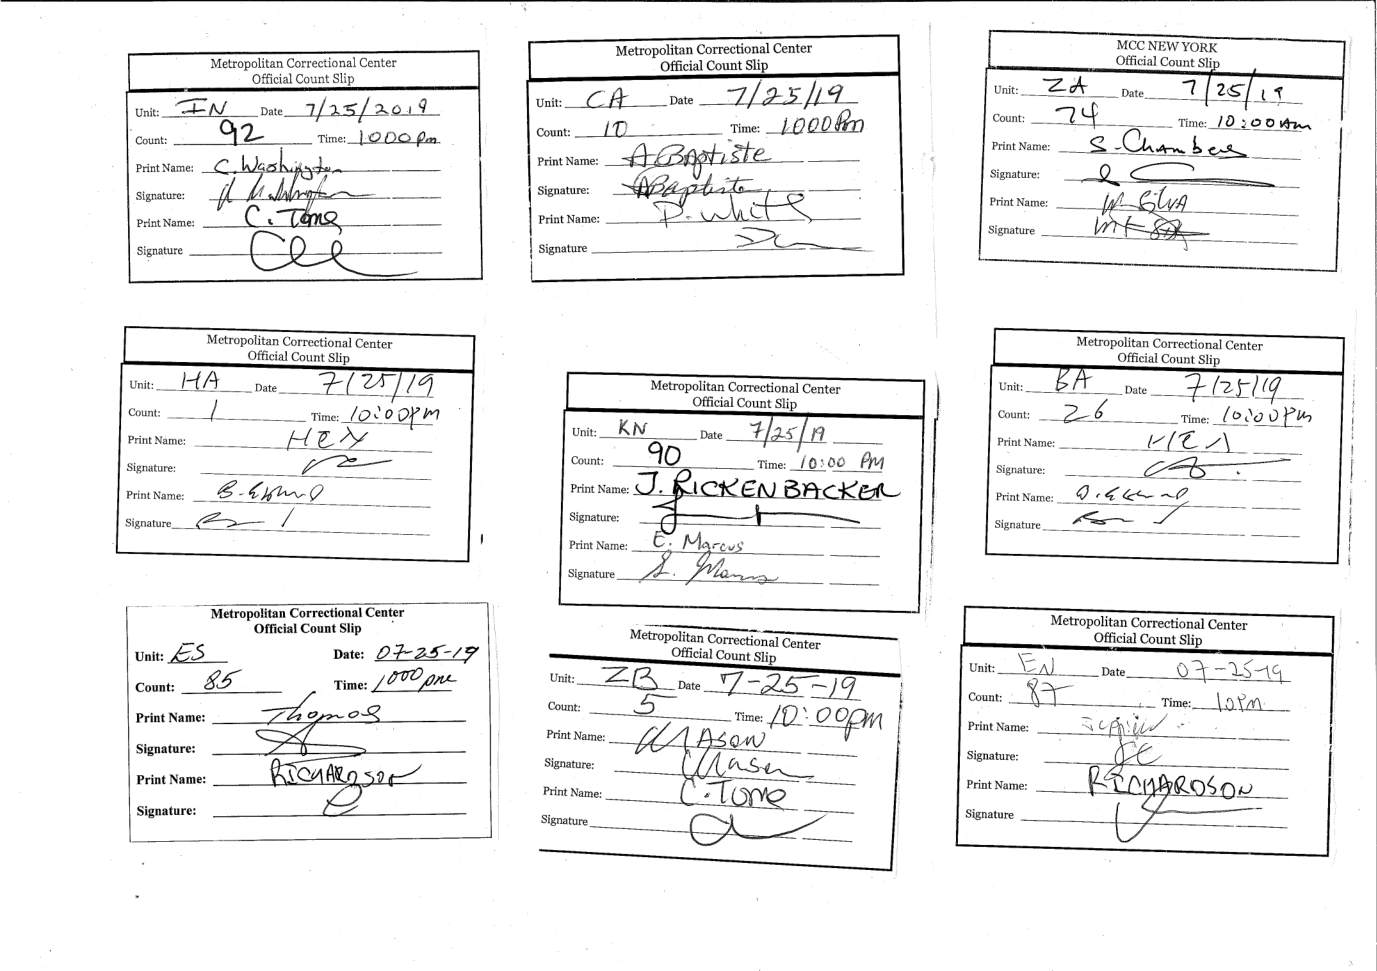 Metropolitan Correctional Center
Official Count Slip
Unit: IN Date 7/25/2019
Count: 92 Time: 1000pm
Print Name: C. Washington
Signature:
Print Name: C. Tone
Signature
Metropolitan Correctional Center
Official Count Slip
Unit: CA Date 7/25/19
Count: 10 Time: 1000Pm
Print Name: A Baptiste
Signature: ABaptiste
Print Name: D. White
Signature
MCC NEW YORK
Official Count Slip
Unit: ZA Date 7/25/19
Count: 74 Time: 10:00Am
Print Name: S. Chambers
Signature:
Print Name: M Silva
Signature
Metropolitan Correctional Center
Official Count Slip
Unit: HA Date 7/25/19
Count: 1 Time: 10:00PM
Print Name:
Signature:
Print Name:
Signature
Metropolitan Correctional Center
Official Count Slip
Unit: KN Date 7/25/19
Count: 90 Time: 10:00 PM
Print Name: J. RICKENBACKER
Signature:
Print Name: E. Marcus
Signature
Metropolitan Correctional Center
Official Count Slip
Unit: BA Date 7/25/19
Count: 26 Time: 10:00PM
Print Name:
Signature:
Print Name:
Signature
Metropolitan Correctional Center
Official Count Slip
Unit: ES Date: 07-25-19
Count: 85 Time: 1000pm
Print Name: Thomas
Signature:
Print Name: RICHARDSON
Signature:
Metropolitan Correctional Center
Official Count Slip
Unit: ZB Date 7-25-19
Count: 5 Time: 10:00pm
Print Name: Mason
Signature: Mason
Print Name: C. Tone
Signature
Metropolitan Correctional Center
Official Count Slip
Unit: EN Date 07-25-19
Count: 87 Time: 10PM
Print Name:
Signature:
Print Name: RICHARDSON
Signature